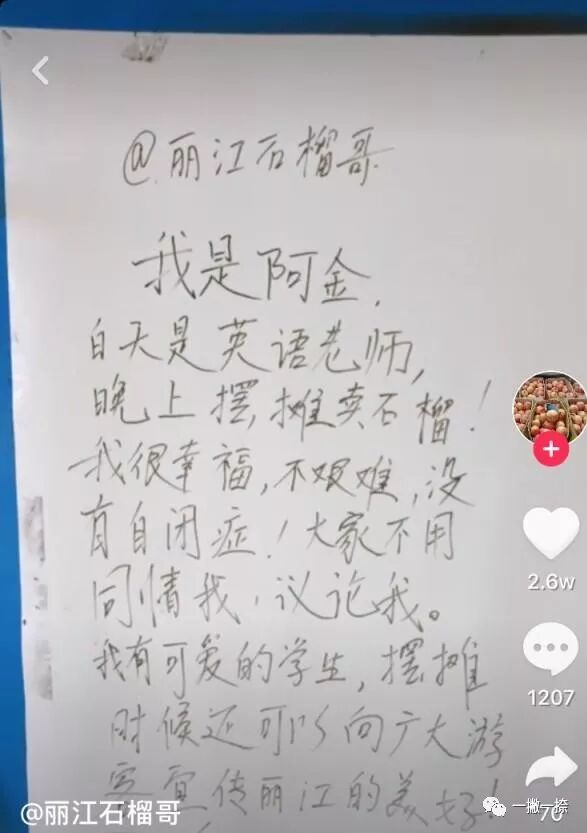 @丽江石榴哥
我是阿金,
白天是英语老师,
晚上摆摊卖石榴!
我很幸福,不艰难,没
有自闭症!大家不用
同情我,议论我。
我有可爱的学生,摆摊
时候还可以向广大游
客宣传丽江的美好!
2.6w
1207
70
@丽江石榴哥
一撇一捺